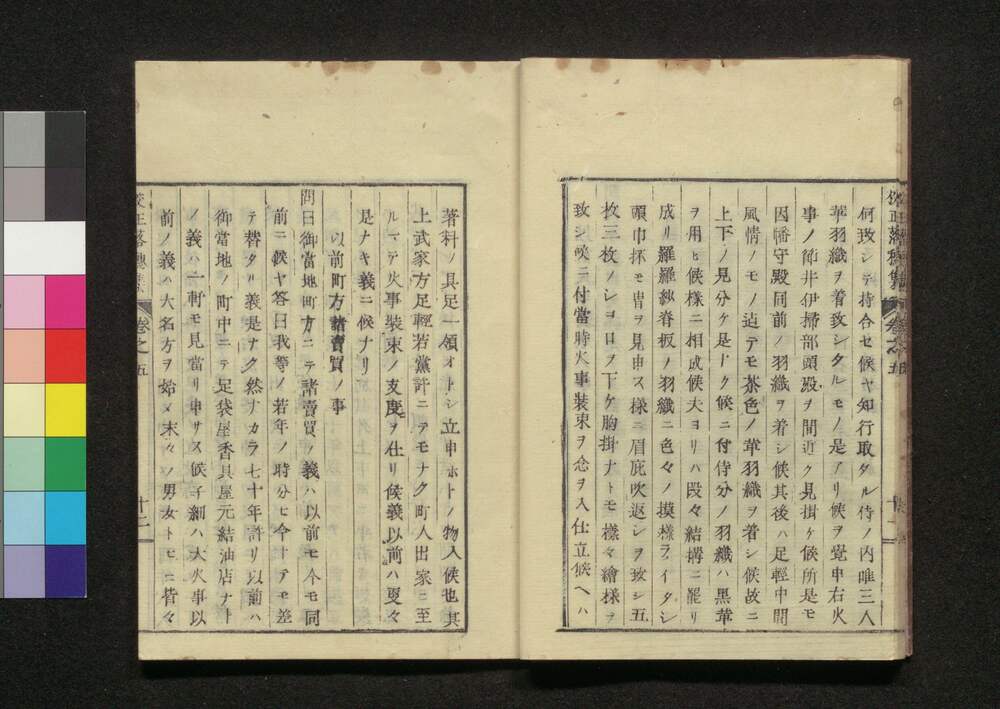 校正落穂集 卷之五 十一
何致シテ持合セ候ヤ知行取タル侍ノ内唯三人
華羽織ヲ着致シタルモノ是アリ候ヲ覚申右火
事ノ節井伊掃部頭殿ヲ間近ク見掛ケ候所是モ
因幡守殿同前ノ羽織ヲ着シ候其後ハ足輕中間
風情ノモノ迠テモ茶色ノ革羽織ヲ着シ候故ニ
上下ノ見分ケ是ナク候ニ付侍分ノ羽織ハ黒革
ヲ用ヒ候様ニ相成候夫ヨリハ段々結構ニ罷リ
成リ羅羅紗脊板ノ羽織ニ色々ノ摸様ヲイタシ
頭巾抔モ冑ヲ見申ス様ニ眉庇吹返シヲ致シ五
枚三枚ノシヨロヲ下ケ胸掛ナトモ様々繪様ヲ
致シ候ニ付當時火事裝束ヲ念ヲ入仕立候ヘハ
著料ノ具足一領オトシ立申ホトノ物入候也其
上武家方足輕若黨許ニテモナク町人出家ニ至
ルマテ火事裝束ノ支度ヲ仕リ候義以前ハ曼々
是ナキ義ニ候ナリ
以前町方諸賣買ノ事
問曰御當地町方ニテ諸賣買ノ義ハ以前モ今モ同
前ニ候ヤ答曰我等ノ若年ノ時分ヒ今トテモ差
テ替タル義是ナク然ナカラ七十年許リ以前ハ
御當地ノ町中ニテ足袋屋香具屋元結油店ナト
ノ義ハ一軒モ見當リ申サス候子細ハ大火事以
前ノ義ハ大名方ヲ始メ末々ノ男女トモニ皆々
校正落穂集 卷之五 十二